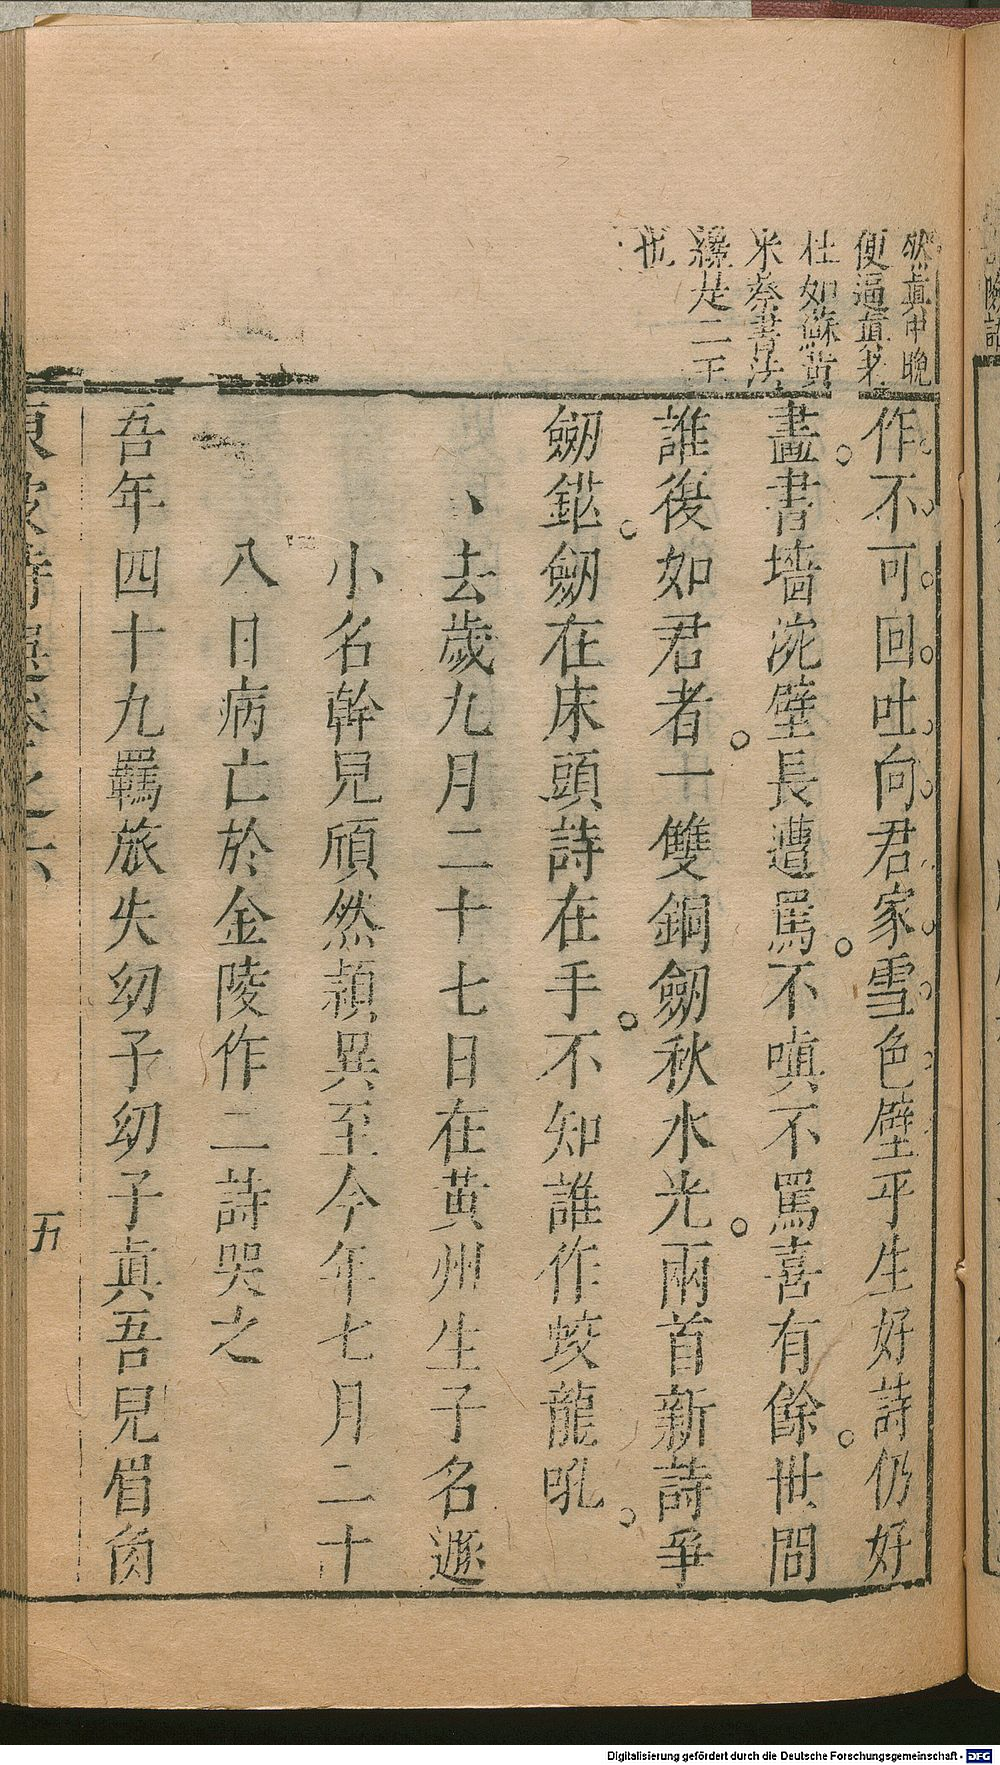 然真中晚
便逼真老
杜如蘇黄
米蔡書法
纔是二王
也
作不可回吐向君家雪色壁平生好詩仍好
畫書墻涴壁長遭罵不嗔不罵喜有餘世間
誰復如君者一雙銅劒秋水光兩首新詩爭
劒鋩劒在床頭詩在手不知誰作蛟龍吼
去歲九月二十七日在黄州生子名遯
小名幹兒頎然頴異至今年七月二十
八日病亡於金陵作二詩哭之
吾年四十九羈旅失幼子幼子真吾兒眉角
東坡詩選卷之六
五
Digitalisierung gefördert durch die Deutsche Forschungsgemeinschaft - DFG